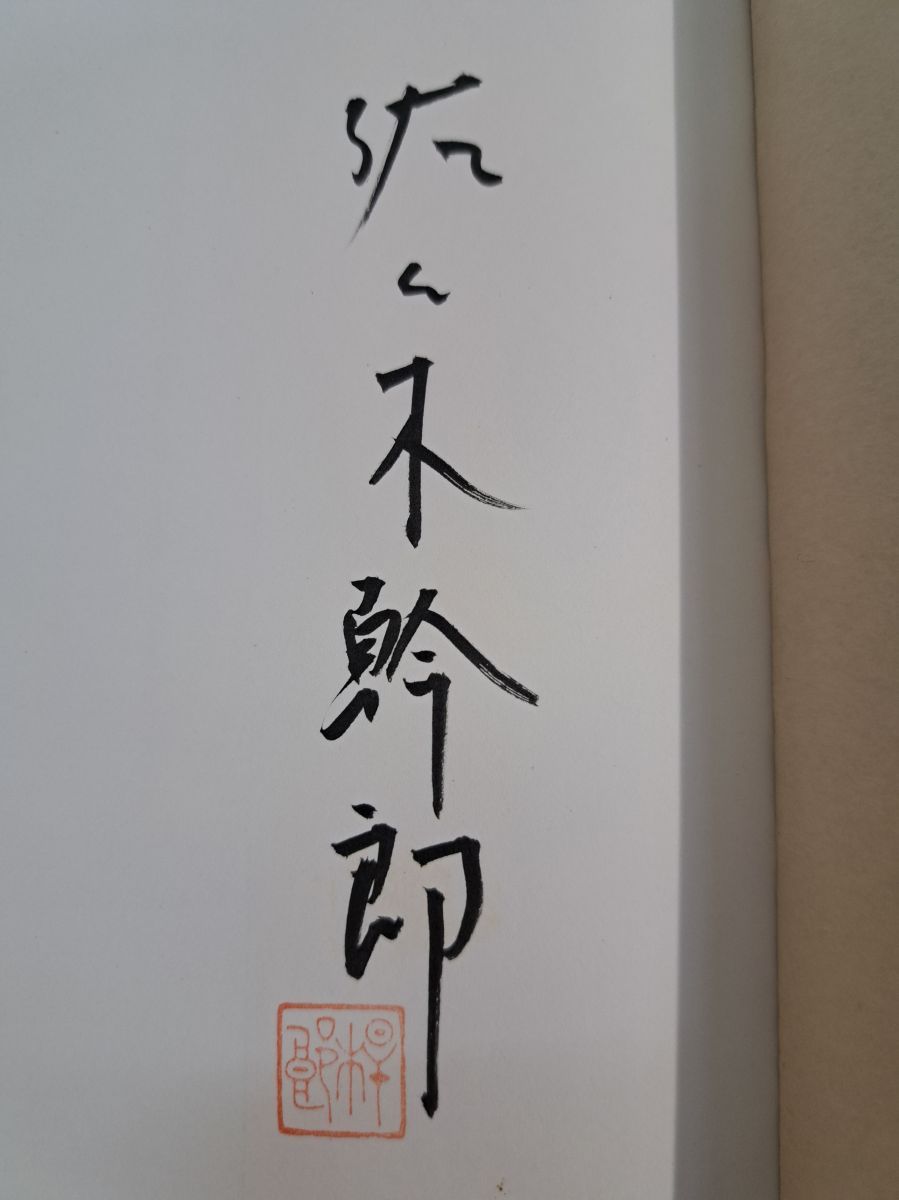 佐々木幹郎